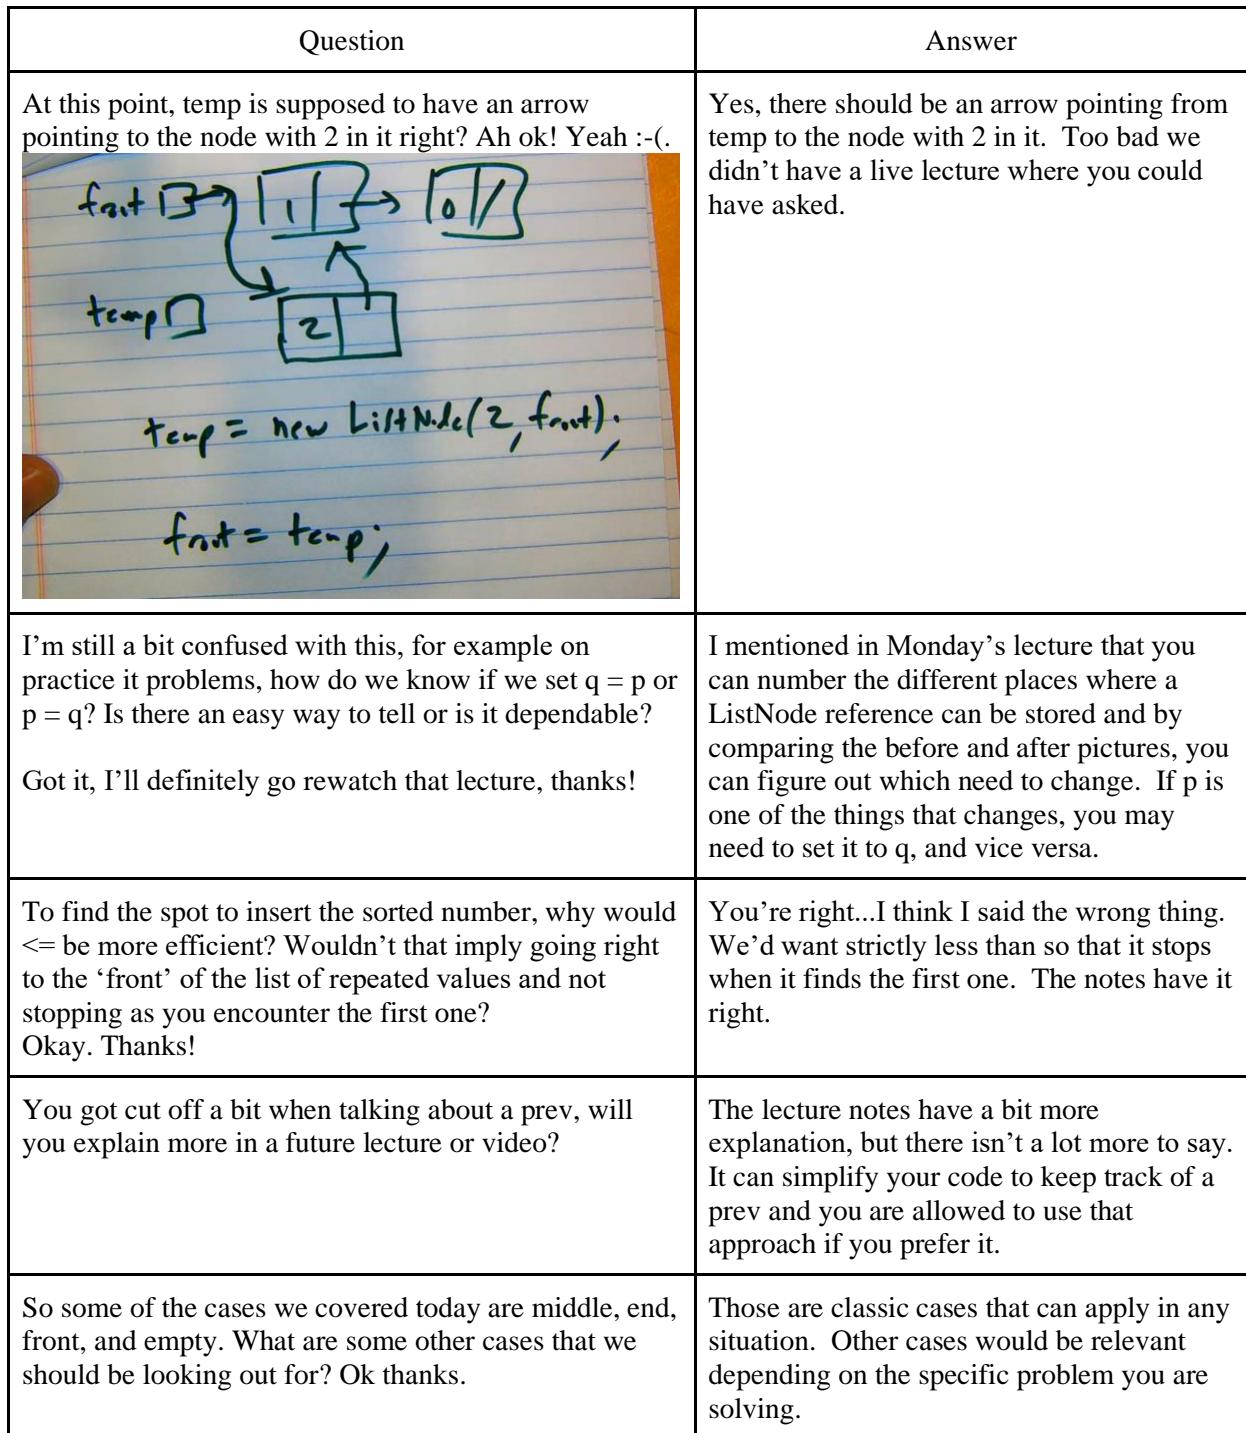 Question
Answer
At this point, temp is supposed to have an arrow
pointing to the node with 2 in it right? Ah ok! Yeah :-(.
front
1
0
temp
2
temp = new ListNode(2, front);
front = temp;
Yes, there should be an arrow pointing from
temp to the node with 2 in it. Too bad we
didn’t have a live lecture where you could
have asked.
I’m still a bit confused with this, for example on
practice it problems, how do we know if we set q = p or
p = q? Is there an easy way to tell or is it dependable?
Got it, I’ll definitely go rewatch that lecture, thanks!
I mentioned in Monday’s lecture that you
can number the different places where a
ListNode reference can be stored and by
comparing the before and after pictures, you
can figure out which need to change. If p is
one of the things that changes, you may
need to set it to q, and vice versa.
To find the spot to insert the sorted number, why would
<= be more efficient? Wouldn’t that imply going right
to the ‘front’ of the list of repeated values and not
stopping as you encounter the first one?
Okay. Thanks!
You’re right...I think I said the wrong thing.
We’d want strictly less than so that it stops
when it finds the first one. The notes have it
right.
You got cut off a bit when talking about a prev, will
you explain more in a future lecture or video?
The lecture notes have a bit more
explanation, but there isn’t a lot more to say.
It can simplify your code to keep track of a
prev and you are allowed to use that
approach if you prefer it.
So some of the cases we covered today are middle, end,
front, and empty. What are some other cases that we
should be looking out for? Ok thanks.
Those are classic cases that can apply in any
situation. Other cases would be relevant
depending on the specific problem you are
solving.